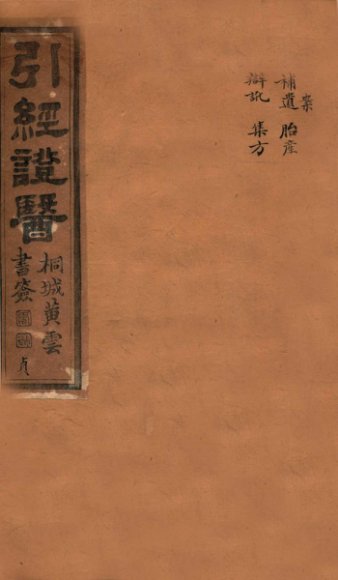 案
補遺 胎產
辯訛 集方
引經證醫
桐城黃雲
書簽
貞